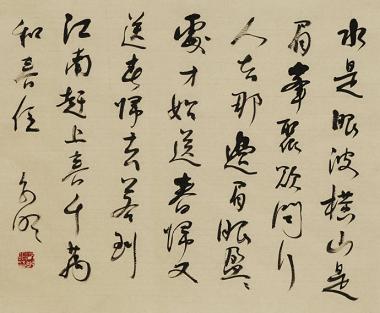 水是眼波橫山是
眉峯聚欲問行
人去那邊眉眼盈〻
處才始送春歸又
送君歸去若到
江南趕上春千萬
和春住